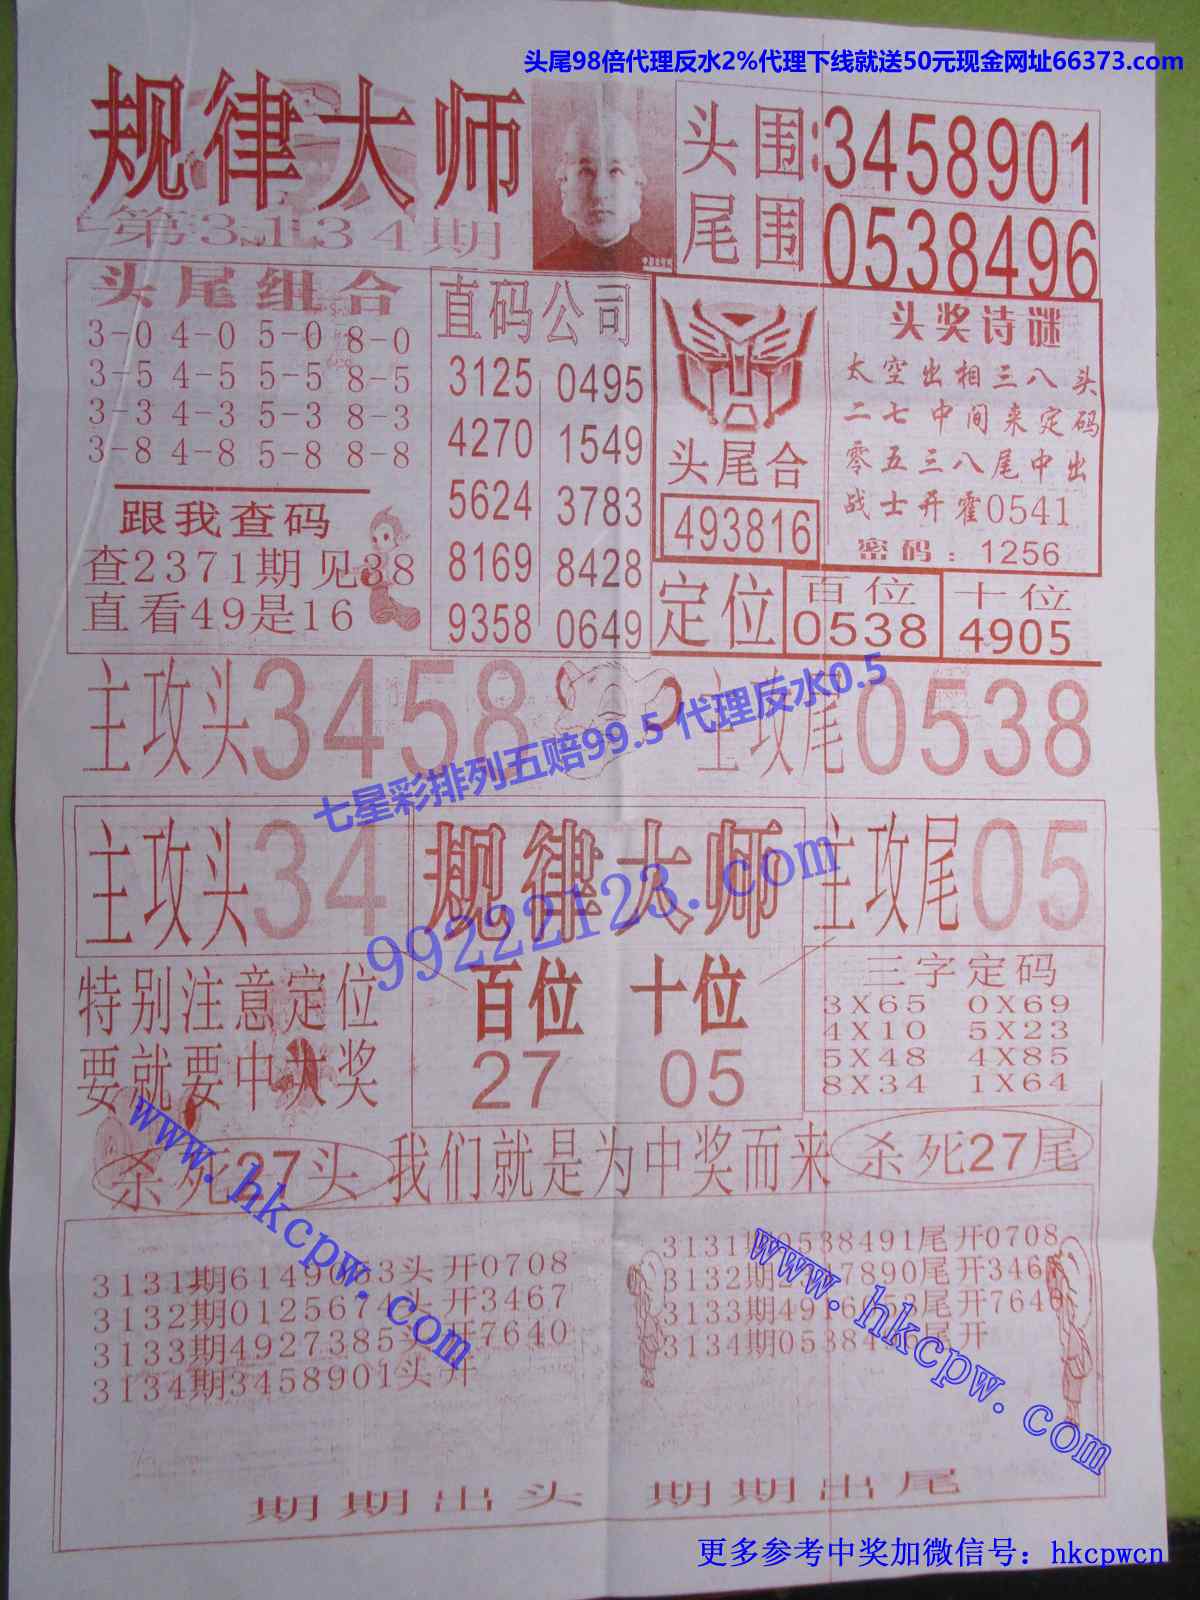 头尾98倍代理反水2%代理下线就送50元现金网址66373.com
规律大师
第3134期
头围:3458901
尾围 0538496
头尾组合
3-0 4-0 5-0 8-0
3-5 4-5 5-5 8-5
3-3 4-3 5-3 8-3
3-8 4-8 5-8 8-8
跟我查码
查2371期见38
直看49是16
直码公司
3125 0495
4270 1549
5624 3783
8169 8428
9358 0649
头尾合
493816
头奖诗谜
太空出相三八头
二七中间来定码
零五三八尾中出
战士开霍0541
密码：1256
定位
百位
0538
十位
4905
主攻头3458
主攻尾0538
七星彩排列五赔99.5 代理反水0.5
主攻头34
规律大师
主攻尾05
99222123.com
特别注意定位
要就要中大奖
百位 十位
27 05
三字定码
3X65 0X69
4X10 5X23
5X48 4X85
8X34 1X64
www.hkcpw.com
杀死27头
我们就是为中奖而来
杀死27尾
3131期6149053头开0708
3132期0125674头开3467
3133期4927385头开7640
3134期3458901头开
3131期0538491尾开0708
3132期 7890尾开346
3133期4916 尾开7640
3134期0538496尾开
www.hkcpw.com
期期出头 期期出尾
更多参考中奖加微信号：hkcpwcn